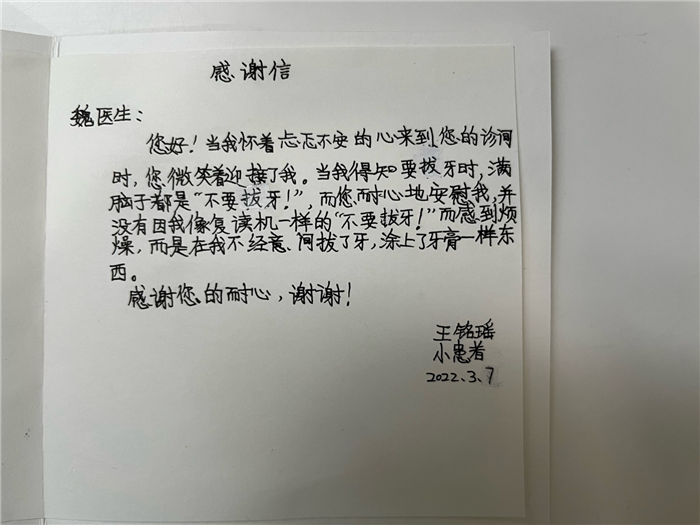 感谢信
魏医生：
您好！当我怀着忐忑不安的心来到您的诊间
时，您微笑着迎接了我。当我得知要拔牙时，满
脑子都是“不要拔牙！”，而您耐心地安慰我，并
没有因我像复读机一样的“不要拔牙！”而感到烦
燥，而是在我不经意间拔了牙，涂上了牙膏一样东
西。
感谢您的耐心，谢谢！
王铭瑶
小患者
2022.3.7